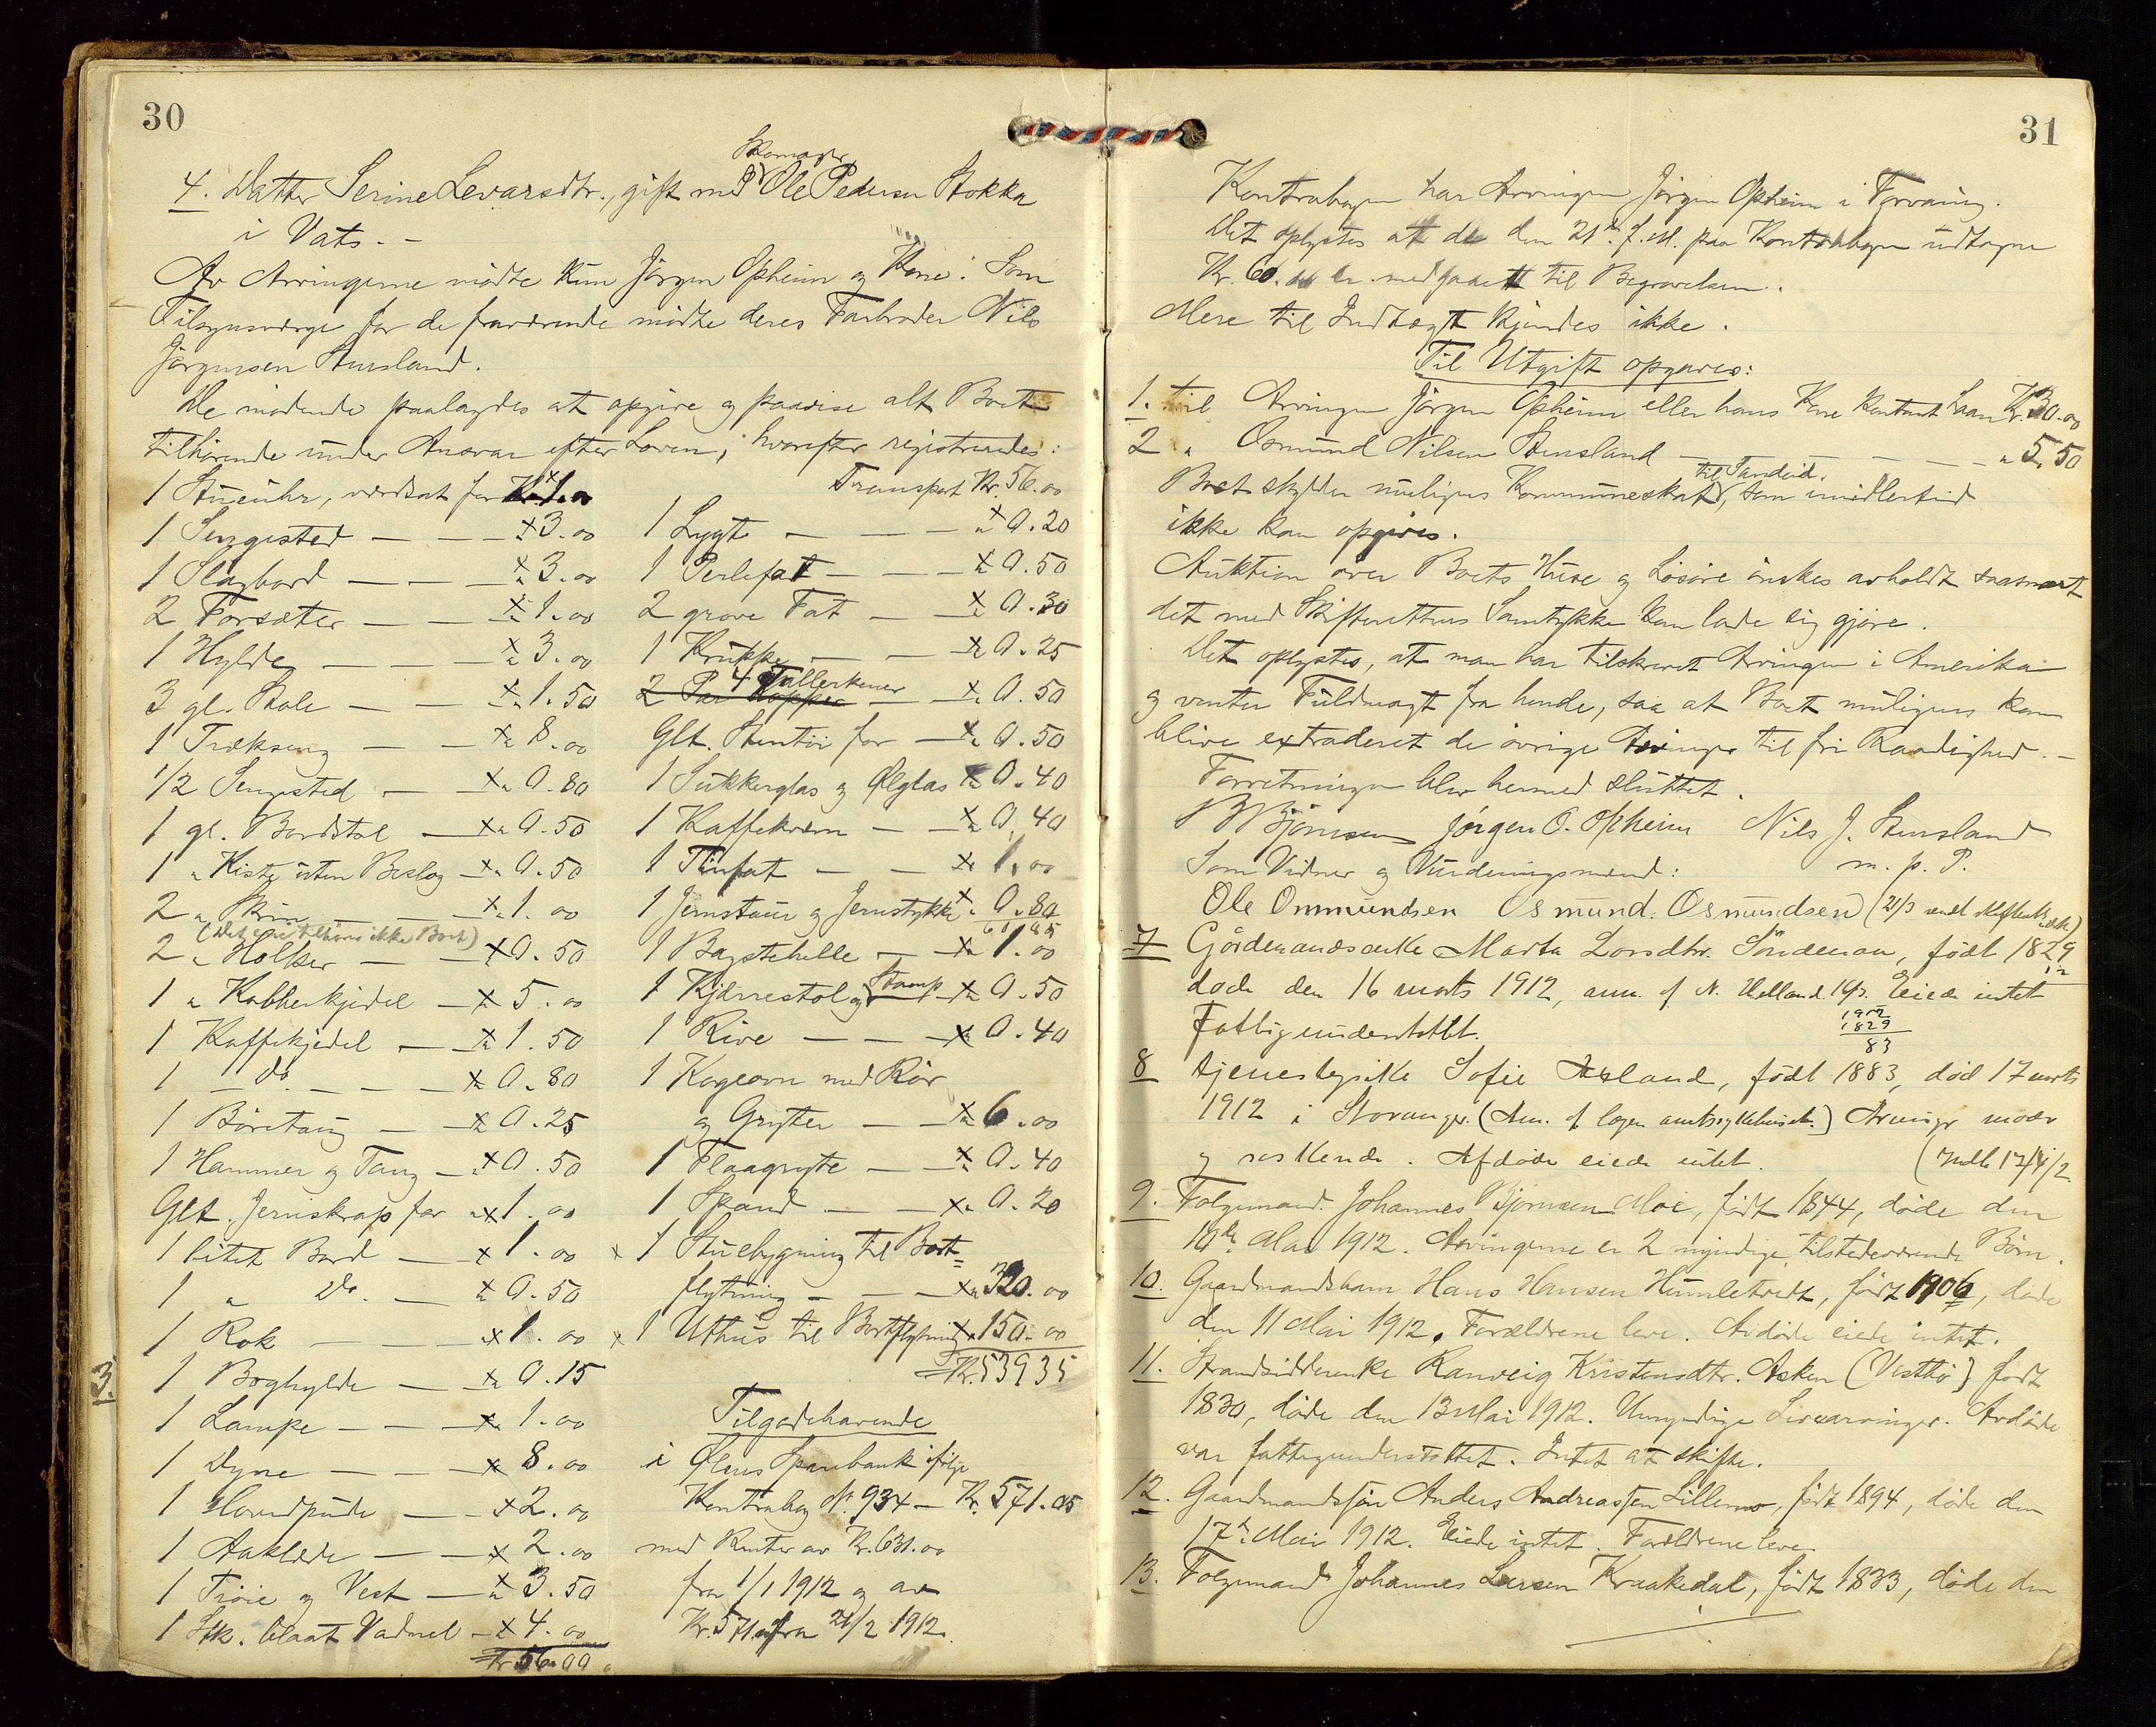 30
Skomager
4. Datter Serine Levarsdtr., gift med Ole Pedersen Stokka
i Vats. -
Av Arvingerne mødte kun Jørgen Opheim og Kone. Som
Tilsynsværge for de fraværende mødte deres Farbroder Nils
Jørgensen Stensland.
De mødende paalagdes at opgive og paavise alt Boet
tilhørende under Ansvar efter Loven, hvorefter registreredes:
1 Stueuhr, værdsat for Kr. 1.00
1 Sengested — — 3.00
1 Slagbord — — 3.00
2 Forsæter — — 1.00
1 Hylde — — 3.00
3 gl. Stole — — 1.50
1 Trækseng — — 8.00
1/2 Sengested — 0.80
1 gl. Bordstol — 0.50
1 " Kiste uten Beslag — 0.50
2 " Skrin — — 1.00
(Det ene tilhører ikke Boet)
2 " Holker — — 0.50
1 " Kobberkjedel — 5.00
1 Kaffekjedel — 1.50
1 — do. — — 0.80
1 Böretang — 0.25
1 Hammer og Tang — 0.50
Glt. Jernskrap for 1.00
1 litet Bord — 1.00
1 " Do. — 0.50
1 Rok — 1.00
1 Boghylde — 0.15
1 Lampe — — 1.00
1 Dyne — — 8.00
1 Hovedpude — 2.00
1 Aaklæde — — 2.00
1 Trøie og Vest — 3.50
1 Stk. blaat Vadmel — 4.00
Kr. 56.00
Transport Kr. 56.00
1 Lygt — — 0.20
1 Perlefat — — 0.50
2 grove Fat — 0.30
1 Krukke — — 0.25
4 Tallerkener
2 Par Kopper — 0.50
Glt. Stentöi for — 0.50
1 Sukkerglas og Ølglas 0.40
1 Kaffekvern — 0.40
1 Tinfat — — 1.00
1 Jernstaur og Jernstykke 0.80
60 85
1 Bagstehelle — 1.00
1 Kjærrestol og Stamp — 0.50
1 Rive — — 0.40
1 Kogeovn med Rör
og Gryter — — 6.00
1 Flaagryte — 0.40
1 Spand — — 0.20
1 Stuebygning til Bort=
flytning — — 320.00
1 Uthus til Bortflytning 150.00
Kr. 539 35
Tilgodehavende
i Ølens Sparebank ifølge
Kontrabog No. 934 — Kr. 571.05
med Renter av Kr. 631.00
fra 1/1 1912 og av
Kr. 571.05 fra 21/2 1912.
3.
31
Kontrabogen har Arvingen Jörgen Opheim i Forvaring.
Det oplystes at de den 21de f. M. paa Kontrabogen udtagne
Kr. 60.00 er medgaaet til Begravelsen.
Mere til Indtægt kjendes ikke.
Til Utgift opgaves:
1. til Arvingen Jörgen Opheim eller hans Kone kontant Laan Kr. 30.00
2 " Osmund Nilsen Stensland — — — — " 5.50
til Sandeid.
Boet skylder muligens Kommuneskat, som imidlertid
ikke kan opgives.
Auktion over Boets Huse og Lösöre önskes avholdt saasnart
det med Skifterettens Samtykke kan lade sig gjøre.
Det oplystes, at man har tilskrevet Arvingen i Amerika
og venter Fuldmagt fra hende, saa at Boet muligens kan
blive extraderet de övrige Arvinger til fri Raadighed. -
Forretningen blev hermed sluttet.
Bjørnsen Jörgen O. Opheim Nils J. Stensland
Som Vidner og Vurderingsmænd: m. p. P.
Ole Ommundsen Osmund Osmundsen (21/3 sendt skifteretten)
7 Gårdmandsenke Marta Larsdtr. Söndenaa, födt 1829
døde den 16 marts 1912, anm. af N. Helland 16/3. Eiede intet
Fattigunderstöttet.
1912
1829
83
8 tjenestepike Sofie Åsland, födt 1883, död 17 marts
1912 i Stavanger. (Anm. af lægen amtssykehuset.) Arvinger moder
og søskende. Afdøde eiede intet. (Indb 17/4/12
9. Folgemand Johannes Bjørnsen Moe, født 1844, døde den
10de Mai 1912. Arvingerne er 2 myndige, tilstedeværende Börn.
10. Gaardmandsbarn Hans Hansen Humletvedt, født 1906, døde
den 11 Mai 1912. Forældrene leve. Avdøde eiede intet.
11. Strandsidderenke Ranveig Kristensdtr. Asken (Vestbø) født
1830, døde den 13 Mai 1912. Umyndige Livsarvinger. Avdøde
var fattigunderstøttet. Intet at skifte.
12. Gaardmandssøn Anders Andreassen Lillemo, født 1894, døde den
17de Mai 1912. Eiede intet. Forældrene leve.
13. Folgemand Johannes Larsen Kraakedal, født 1833, døde den